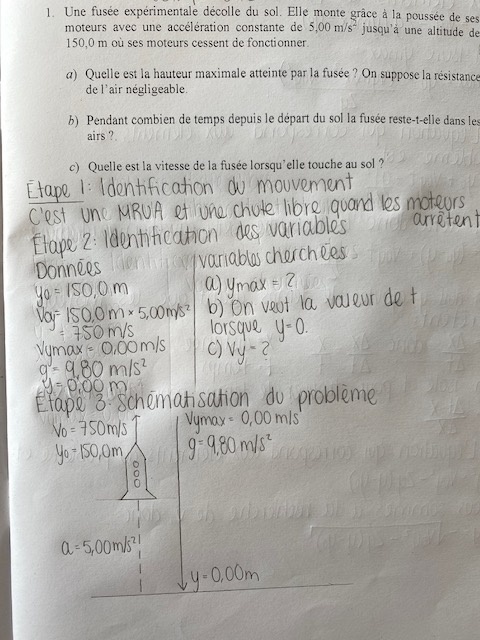 1. Une fusée expérimentale décolle du sol. Elle monte grâce à la poussée de ses
moteurs avec une accélération constante de 5,00 m/s² jusqu'à une altitude de
150,0 m où ses moteurs cessent de fonctionner.
a) Quelle est la hauteur maximale atteinte par la fusée ? On suppose la résistance
de l'air négligeable.
b) Pendant combien de temps depuis le départ du sol la fusée reste-t-elle dans les
airs ?
c) Quelle est la vitesse de la fusée lorsqu'elle touche au sol ?
Étape 1: Identification du mouvement
C'est une MRUA et une chute libre quand les moteurs
arrêtent
Étape 2: Identification des variables
Données
y₀ = 150,0 m
V₀y = 150,0m × 5,00m/s²
= 750 m/s
Vymax = 0,00m/s
g = 9,80 m/s²
y = 0,00 m
variables cherchées
a) ymax = ?
b) On veut la valeur de t
lorsque y=0.
c) Vy = ?
Étape 3: Schématisation du problème
V₀ = 750m/s
y₀ = 150,0m
a = 5,00m/s²
Vymax = 0,00 m/s
g = 9,80 m/s²
y = 0,00m